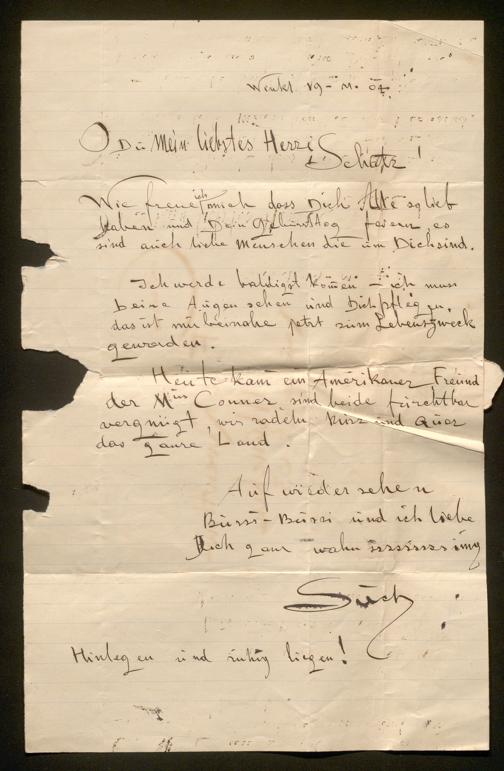 19-
O Du Mein liebstes Herzi
Schatz!
Wie freue ich mich dass Dich Alle so lieb
haben und Dein Geburtstag feiern es
sind auch liebe Menschen die um Dich sind.
Ich werde baldigst kommen – ich muss
Deine Augen sehen und Dich pflegen,
das ist mir beinahe jetzt zum Lebenszweck
geworden.
Heute kam ein Amerikaner Freund
der Miss Conner sind beide furchtbar
vergnügt, wir radeln kurz und quer
das ganze Land.
Auf wiedersehen
Bussi-Bussi und ich liebe
Dich ganz wahnsssssssinnig
Hinlegen und ruhig liegen!